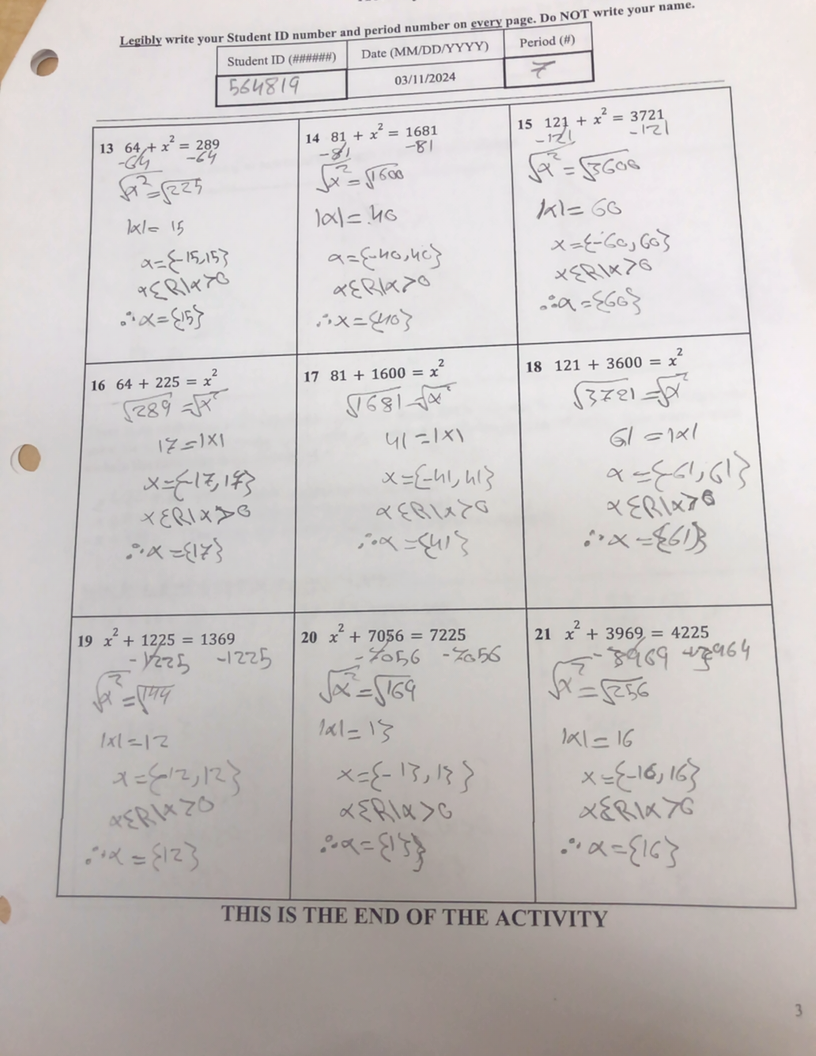 Legibly write your Student ID number and period number on every page. Do NOT write your name.
Student ID (######) Date (MM/DD/YYYY) Period (#)
564819 03/11/2024 7
13 64 + x² = 289
-64 -64
√x² = √225
|x| = 15
x = {-15, 15}
x ∈ R | x > 0
∴ x = {15}
14 81 + x² = 1681
-81 -81
√x² = √1600
|x| = 40
x = {-40, 40}
x ∈ R | x > 0
∴ x = {40}
15 121 + x² = 3721
-121 -121
√x² = √3600
|x| = 60
x = {-60, 60}
x ∈ R | x > 0
∴ x = {60}
16 64 + 225 = x²
√289 = √x²
17 = |x|
x = {-17, 17}
x ∈ R | x > 0
∴ x = {17}
17 81 + 1600 = x²
√1681 = √x²
41 = |x|
x = {-41, 41}
x ∈ R | x > 0
∴ x = {41}
18 121 + 3600 = x²
√3721 = √x²
61 = |x|
x = {-61, 61}
x ∈ R | x > 0
∴ x = {61}
19 x² + 1225 = 1369
-1225 -1225
√x² = √144
|x| = 12
x = {-12, 12}
x ∈ R | x > 0
∴ x = {12}
20 x² + 7056 = 7225
-7056 -7056
√x² = √169
|x| = 13
x = {-13, 13}
x ∈ R | x > 0
∴ x = {13}
21 x² + 3969 = 4225
-3969
√x² = √256
|x| = 16
x = {-16, 16}
x ∈ R | x > 0
∴ x = {16}
THIS IS THE END OF THE ACTIVITY
3